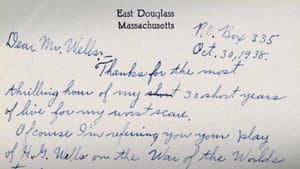 East Douglass
Massachusetts
P.O. Box 335
Oct. 30, 1938.
Dear Mr. Wells:—
Thanks for the most
thrilling hour of my short 30 short years
of live for my worst scare.
Of course I'm refering you your play
of H.G. Wells on the War of the Worlds